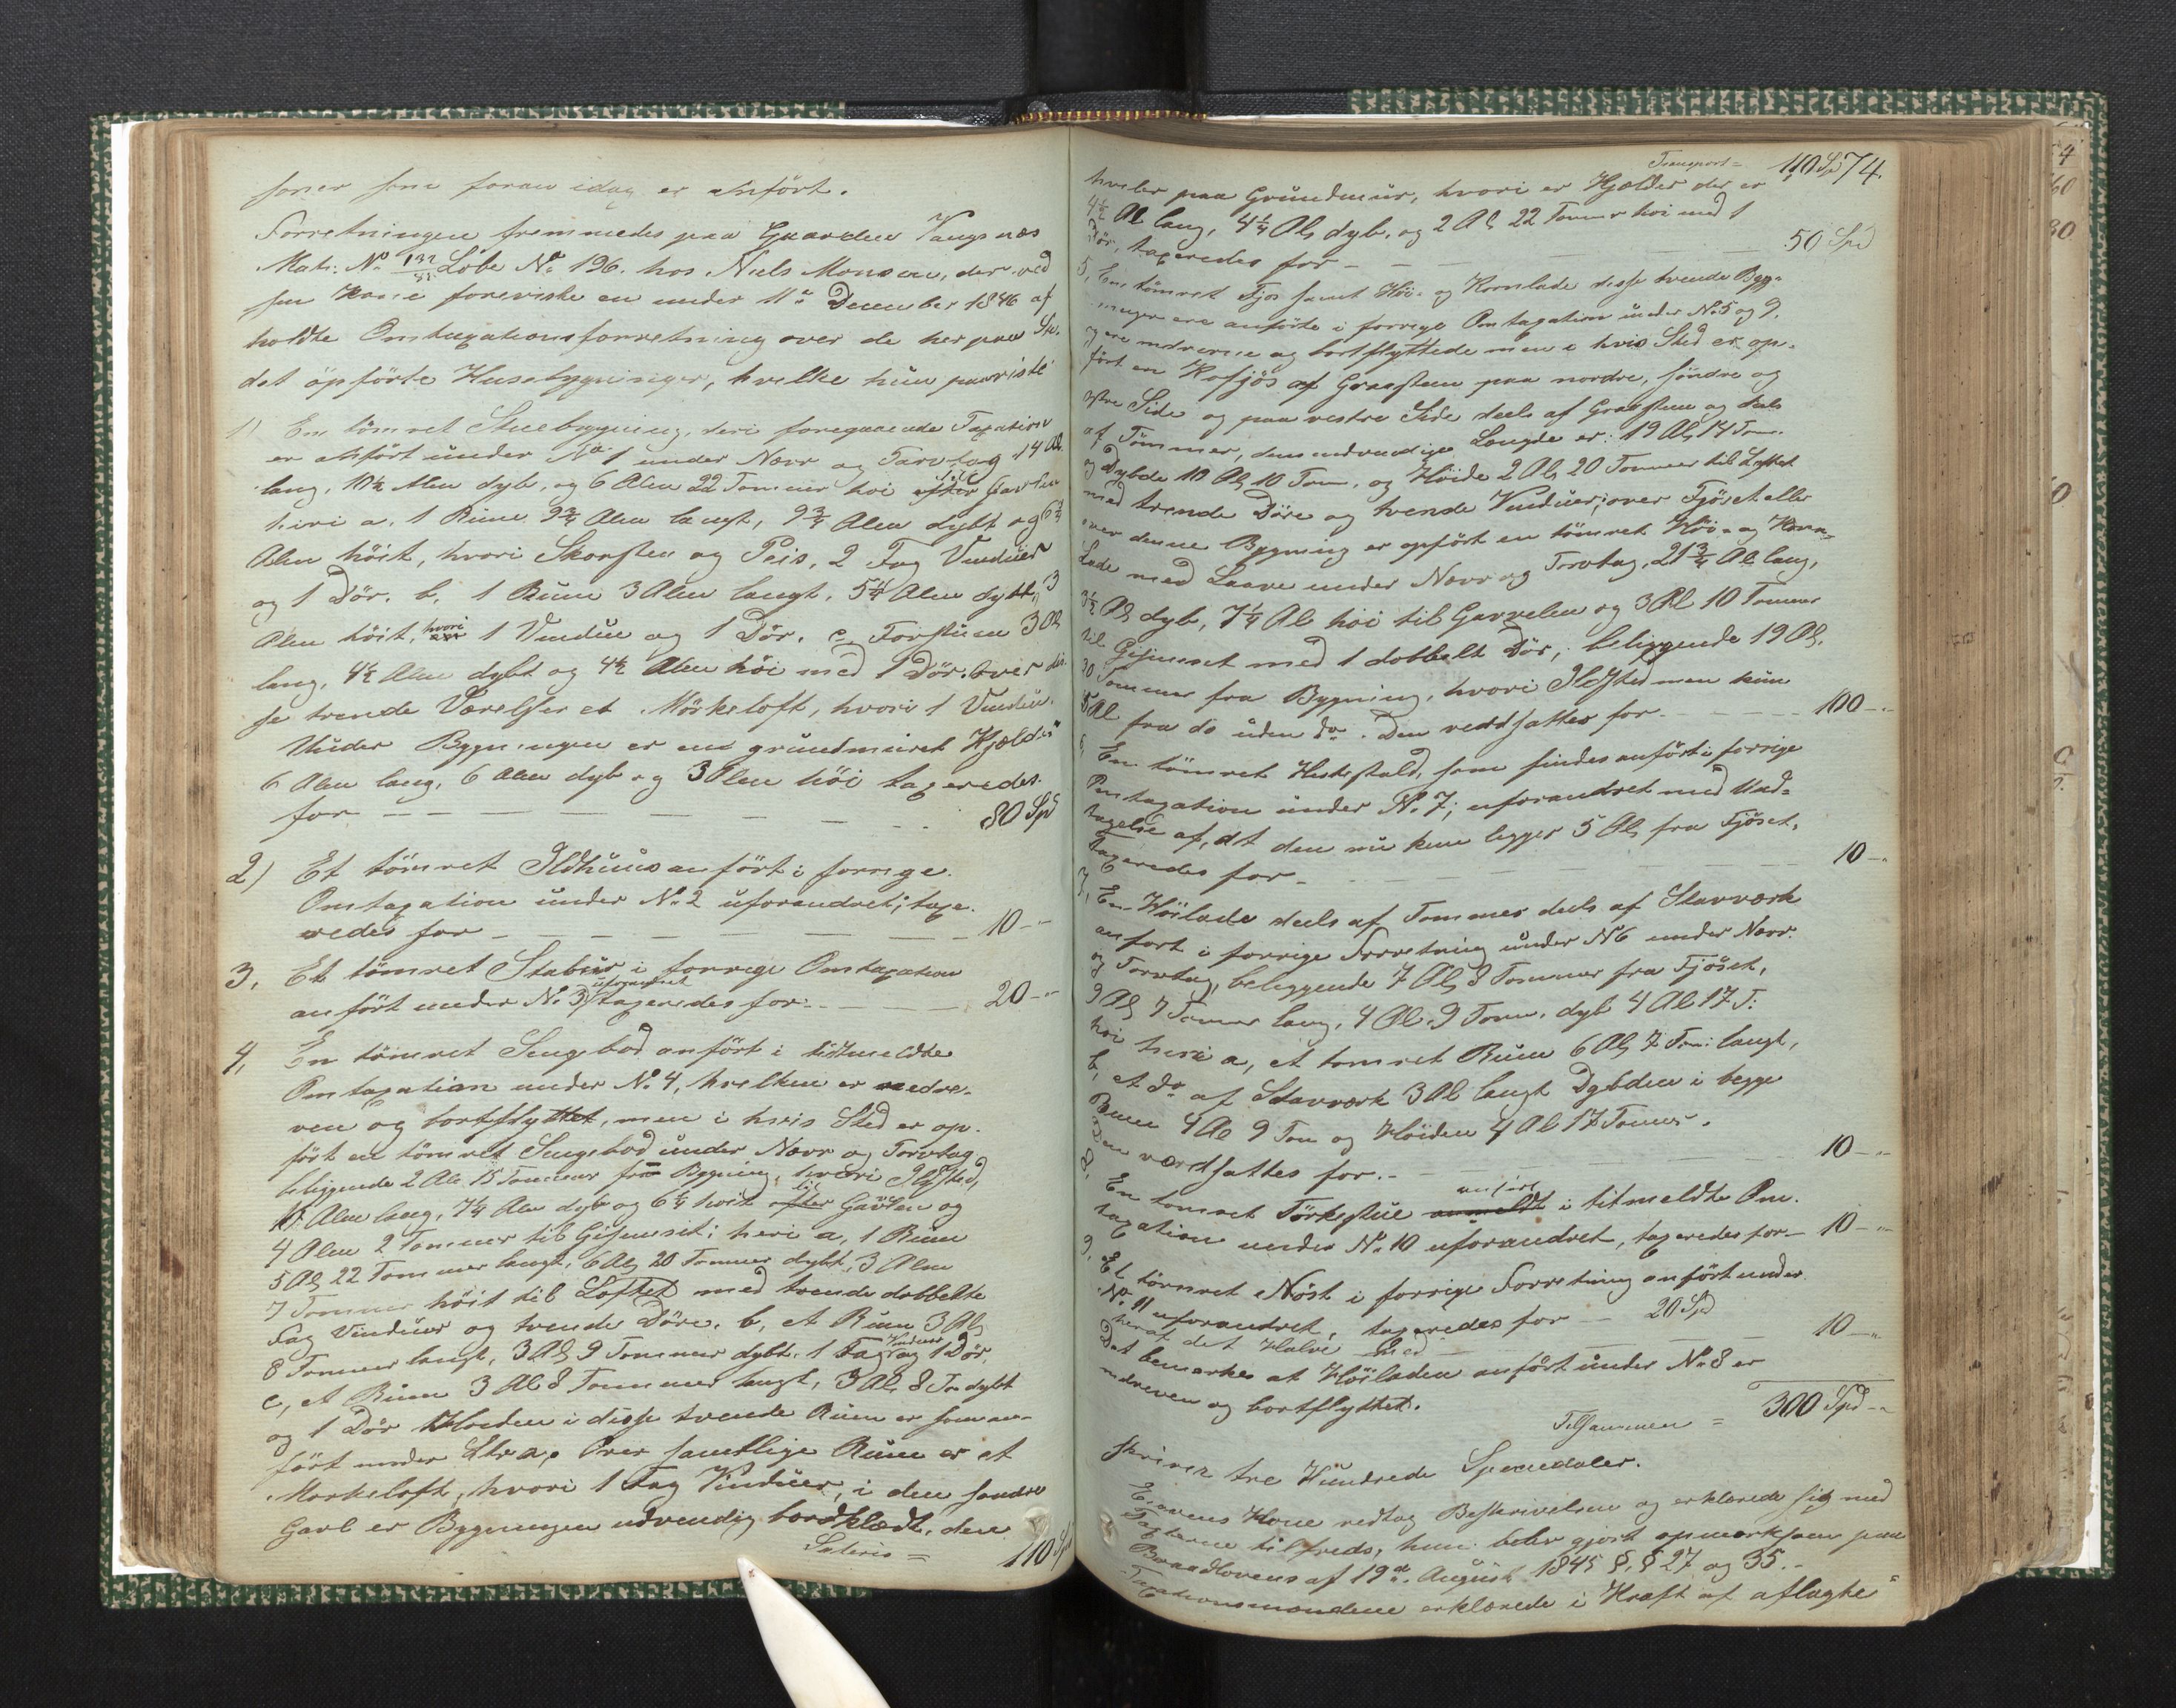 soner som foran idag er anført.
Forretningen fremmedes paa Gaarden Vangsnæs
Matr: No 132 Løbe No 196. hos Niels Monsen, der ved
sin Kone foreviste en under 11te December 1846 af
holdte Omtaxationsforretning over de her paa Ste-
det opførte Huusebygninger, hvilke hun paaviste
1) En tømret Stuebygning, deri foregaaende Taxation
er anført under No 1 under Næver og Torvtag 14 Al
lang, 10½ Alen dyb, og 6 Alen 22 Tommer høi til Gavlen
heri a. 1 Rum 9¾ Alen langt, 9¾ Alen dybt og 6¼
Alen høit, hvori Skorsten og Peis, 2 Fag Vinduer
og 1 Dør. b, 1 Rum 3 Alen langt, 5¼ Alen dybt, 3
Alen høit, hvori 1 Vindue og 1 Dør. c, Forstuen 3 Al
lang, 4½ Alen dybt og 4½ Alen høi med 1 Dør. Over dis-
se trende Værelser et Mørkeloft, hvori 1 Vindue.
Under Bygningen er en grundmuret Kjælder
6 Alen lang, 6 Alen dyb og 3 Alen høi taxeredes
for 80 Spd
2.) Et tømret Ildhuus anført i forrige
Omtaxation under No 2 uforandret; taxe-
redes for 10 -"
3, Et tømret Stabur i forrige Omtaxation
anført under No 3 uforandret taxeredes for 20 -"
4, En tømret Sengebod anført i titmeldte
Omtaxation under No 4, hvilken er nedre-
ven og bortflyttet, men i hvis Sted er op-
ført en tømret Sengebod under Næver og Torvtag
beliggende 2 Ale 15 Tommer fra Bygning, hvori Ildsted,
10 Alen lang, 7¼ Alen dyb og 6¼ høit til Gavlen og
4 Alen 2 Tommer til Gesimset; heri a, 1 Rum
5 Al 22 Tommer langt, 6 Al 20 Tommer dybt, 3 Alen
7 Tommer høit til Loftet med trende dobbelte
Fag Vinduer og tvende Døre. b, et Rum 3 Al
8 Tommer langt, 3 Al 9 Tommer dybt. 1 Fag Vinduer og 1 Dør,
c, et Rum 3 Al 8 Tommer langt, 3 Al 8 To dybt
og 1 Dør Høiden i disse tvende Rum er som an-
ført under Litr a. Over samtlige Rum er et
Mørkeloft, hvori 1 Fag Vinduer, i den søndre
Gavl er Bygningen udvendig bordklædt, den
Lateris = 110 Spd
Transport = 110 Spd 74.
hviler paa Grundmuur, hvori er Kjælder der er
4½ Al lang, 4¼ Al dyb, og 2 Al 22 Tommer høi med 1
Dør, taxeredes for 50 Spd
5, En tømret Fjøs samt Høi- og Kornlade disse tvende Byg-
ninger ere anførte i forrige Omtaxation under No 5 og 9,
og ere nedrevne og bortflyttede men i hvis Sted er op-
ført en Kofjøs af Graasteen paa nordre, søndre og
østre Side og paa vestre Side deels af Graasteen og deels
af Tømmer, dens indvendige Længde er: 19 Al 14 Tom.
og Dybde 10 Al 10 Tom. og Høide 2 Al 20 Tommer til Loftet
med trende Døre og tvende Vinduer; over Fjøset eller
over denne Bygning er opført en tømret Høi- og Korn-
Lade med Laave under Næver og Torvtag, 21¾ Al lang,
Al dyb, 7¼ Al høi til Gavlen og 3 Al 10 Tommer
til Gesimset med 1 dobbelt Dør; beliggende 19 Al
Tommer fra Bygning, hvori Ildsted men kun
5 Al fra do uden do. Den værdsattes for 100 -"
6, En tømret Hestestald, som findes anført i forrige
Omtaxation under No 7; uforandret med Und-
tagelse af, at den nu kun ligger 5 Al fra Fjøset,
taxeredes for 10 -"
7, En Høilade deels af Tømmer deels af Stavværk
anført i forrige Forretning under No 6 under Næver
og Torvtag, beliggende 7 Al 8 Tommer fra Fjøset,
9 Al 7 Tommer lang, 4 Al 9 Tom. dyb 4 Al 17 T:
høi heri a, et tømret Rum 6 Al 7 Tom: langt,
b, et do af Stavværk 3 Al langt Dybden i begge
Rum 4 Al 9 Tom og Høiden 4 Al 17 Tommer.
Den værdsattes for. 10 -"
8, En tømret Tørkestue anmeldt anført i titmeldte Om-
taxation under No 10 uforandret, taxeredes for 10 -"
9, Et tømret Nøst i forrige Forretning anført under
No 11 uforandret, taxeredes for 20 Spd
heraf det Halve med 10 -"
Det bemærkes at Høiladen anført under No 8 er
nedreven og bortflyttet.
Tilsammen = 300 Spd -"
skriver tre Hundrede Speciedaler.
Eierens Kone vedtog Beskrivelsen og erklærede sig med
Taxterne tilfreds, hun blev gjort opmærksom paa
Brandlovens af 19de August 1845 §.§ 27 og 35.-
Taxationsmændene erklærede i Kraft af aflagte